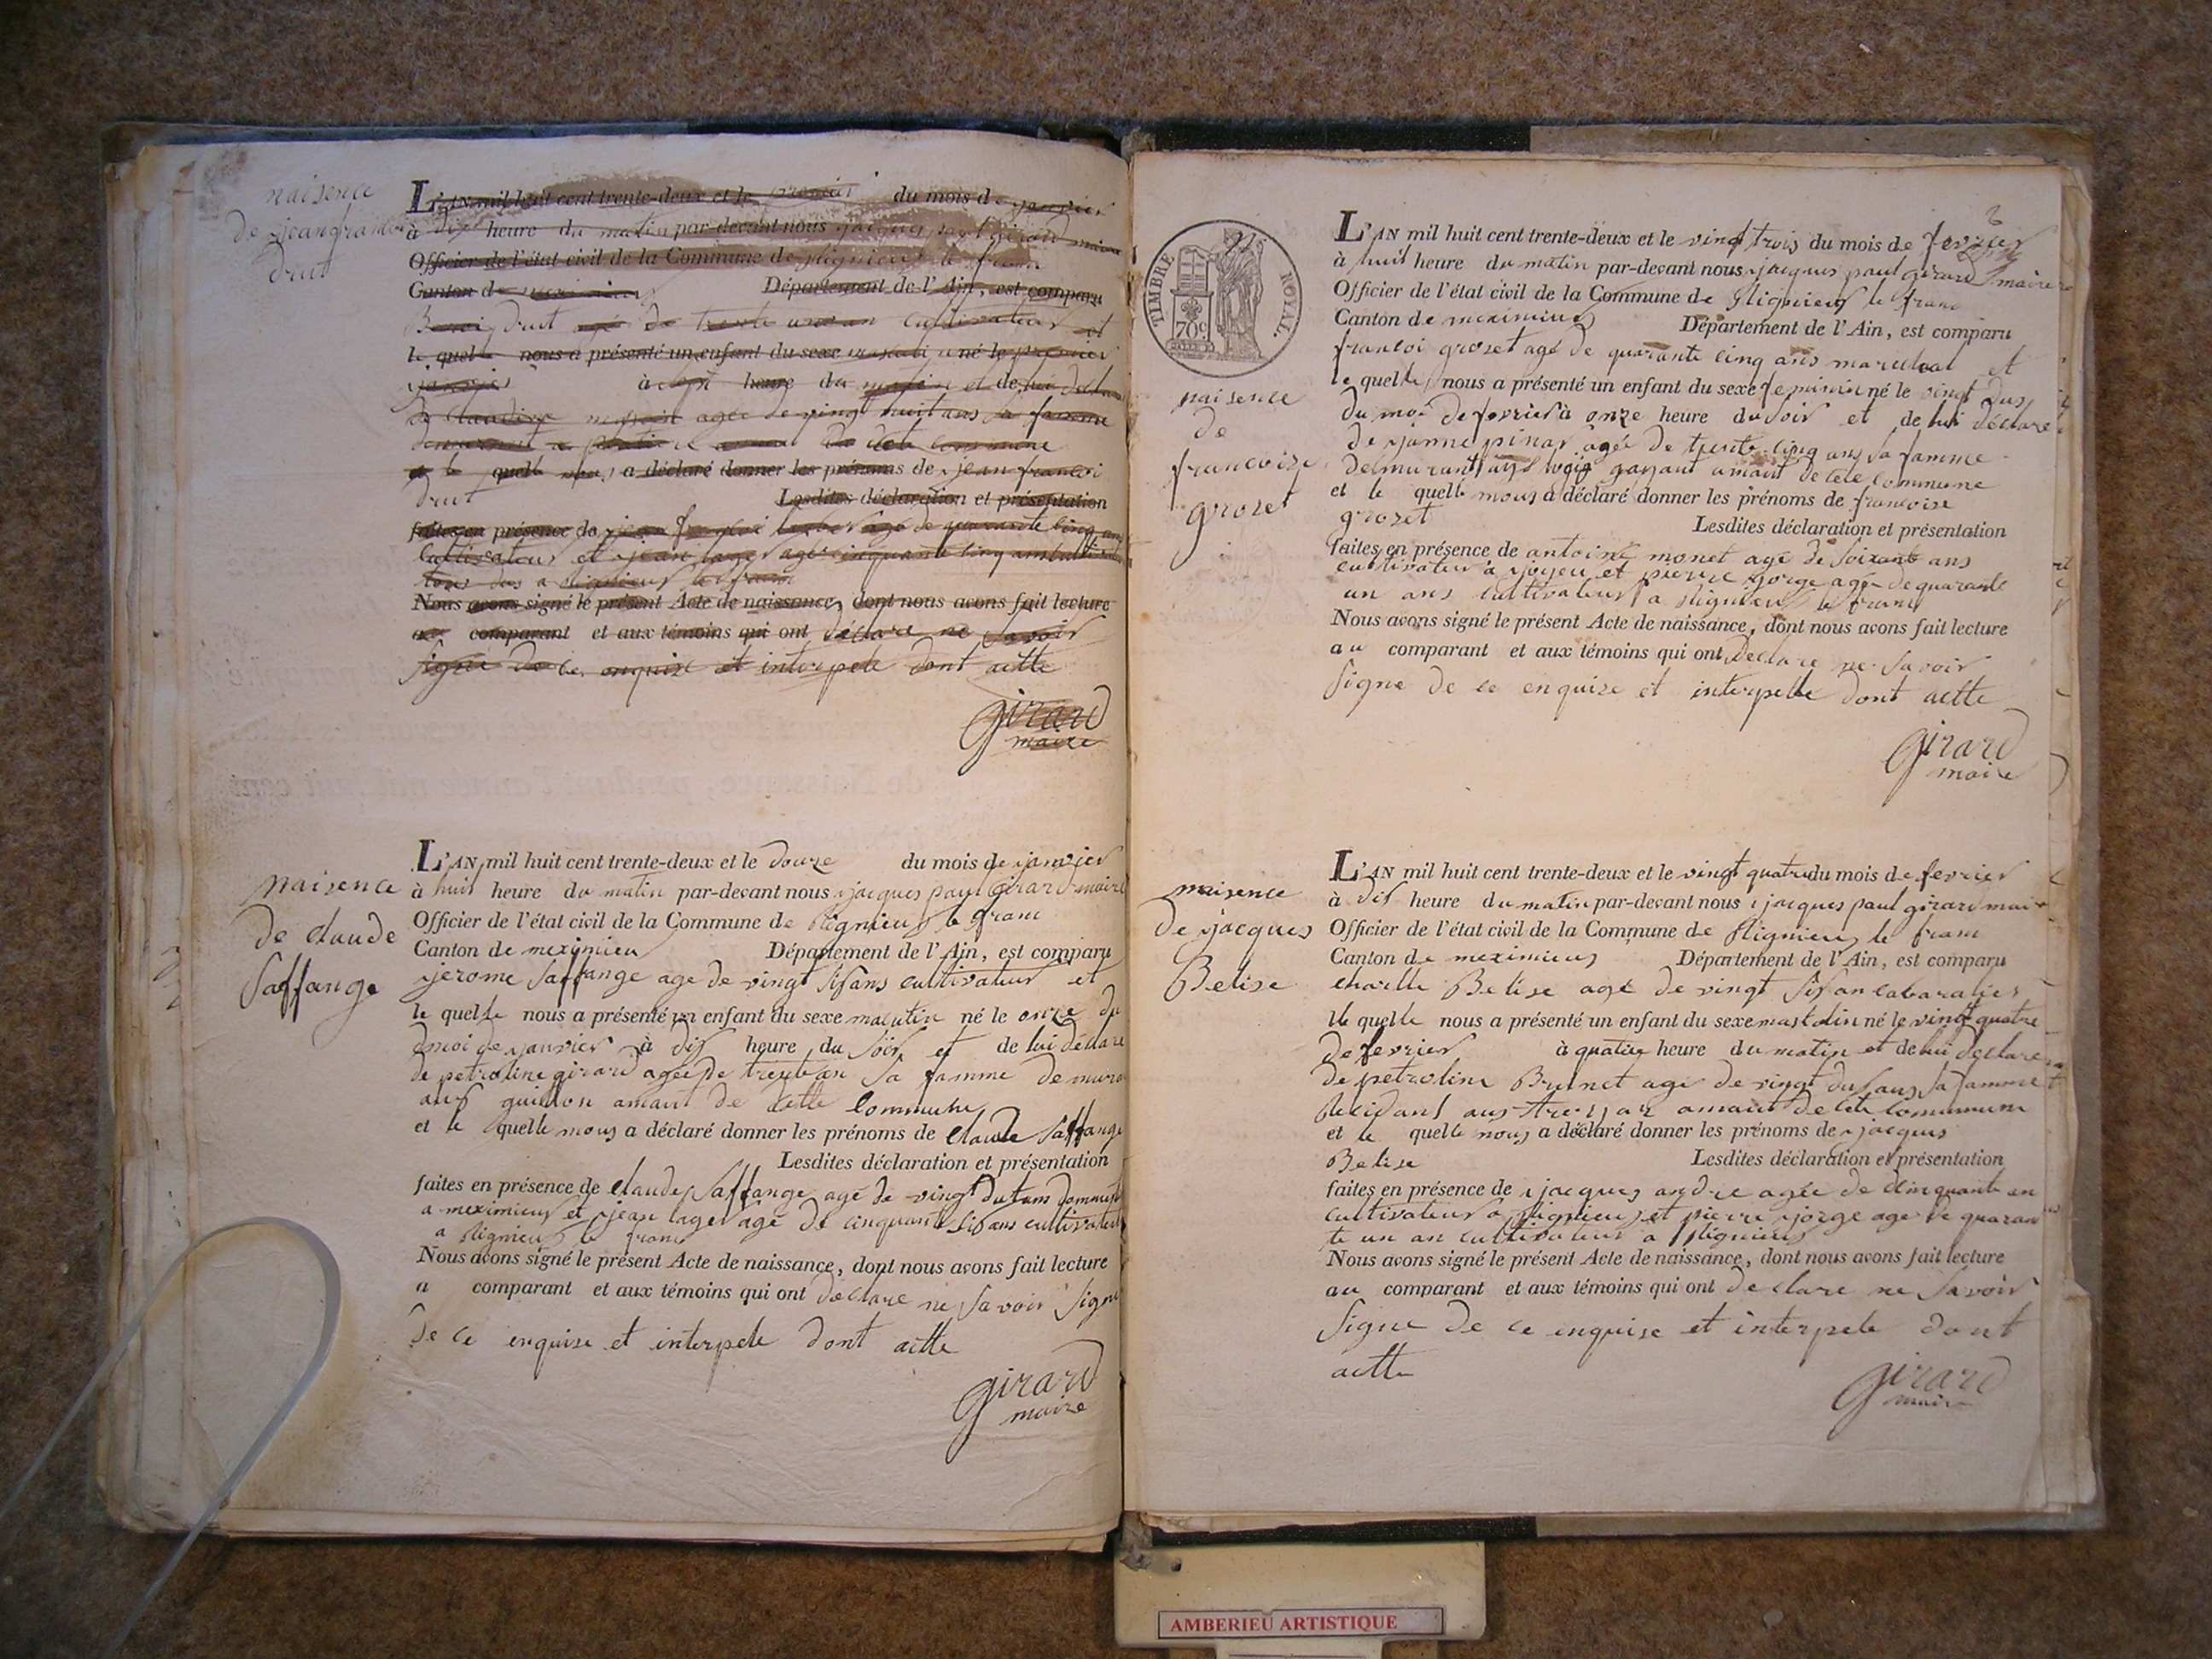 naisence
de jean francoi
drut
L'AN mil huit cent trente-deux et le premier du mois de janvier
à dix heure du matin par-devant nous jacques paul girard maire
Officier de l'état civil de la Commune de plignieux le franc
Canton de meximieux Département de l'Ain, est comparu
drut agé de trente un an cultivateur et
le quelle nous a présenté un enfant du sexe né le premier
janvier à sept heure du matin et de lui déclare
de claudine agée de vingt huit ans sa famme
demurant a de dete commune
et le quelle nous a déclaré donner les prénoms de jean francoi
drut Lesdites déclaration et présentation
faites en présence de jean francoi agé de quarante cinq ans
cultivateur et jean lager agé cinquante cinq ans cultivateur
tous dus a plignieux le franc
Nous avons signé le présent Acte de naissance, dont nous avons fait lecture
au comparant et aux témoins qui ont déclare ne savoir
signe de ce enquise et interpele dont actte
girard
maire
naisence
de claude
saffange
L'AN mil huit cent trente-deux et le douze du mois de janvier
à huit heure du matin par-devant nous jacques paul girard maire
Officier de l'état civil de la Commune de plignieux le franc
Canton de meximieu Département de l'Ain, est comparu
jerome saffange age de vingt sis ans cultivateur et
le quelle nous a présenté un enfant du sexe maculin né le onze du
moi de janvier à dis heure du soir et de lui déclare
de petroline girard agée de trente an sa famme demura
aus guillon amaut de cette commune
et le quelle nous a déclaré donner les prénoms de claude saffange
Lesdites déclaration et présentation
faites en présence de claude saffange agé de vingt
a meximieux et jean lager agé de cinquante sis ans cultivateur
a plignieux le franc
Nous avons signé le présent Acte de naissance, dont nous avons fait lecture
a comparant et aux témoins qui ont declare ne savoir signe
de ce enquise et interpele dont actte
girard
maire
TIMBRE ROYAL
70c
2
naisence
de
francoize
grozet
L'AN mil huit cent trente-deux et le vingt trois du mois de fevrier
à huit heure du matin par-devant nous jacques paul girard maire
Officier de l'état civil de la Commune de plignieux le franc
Canton de meximieux Département de l'Ain, est comparu
francoi grozet agé de quarante cinq ans marechal et
le quelle nous a présenté un enfant du sexe feminin né le vingt dus
du moi de fevrier à onze heure du soir et de lui déclare
de janne pinar agée de trente cinq ans sa famme
demurant aus logis gaxaut amaut de cete commune
et le quelle nous a déclaré donner les prénoms de francoise
grozet Lesdites déclaration et présentation
faites en présence de antoine monet agé de soixante ans
cultivateur a joyeu et pierre jorge agée de quarante
un ans cultivateur a pligneux le franc
Nous avons signé le présent Acte de naissance, dont nous avons fait lecture
au comparant et aux témoins qui ont declare ne savoir
signe de ce enquize et interpelle dont actte
girard
maire
naisence
de jacques
Belise
L'AN mil huit cent trente-deux et le vingt quatre du mois de fevrier
à dis heure du matin par-devant nous jacques paul girard maire
Officier de l'état civil de la Commune de plignieux le franc
Canton de meximieux Département de l'Ain, est comparu
charlle Belise agé de vingt sis an
le quelle nous a présenté un enfant du sexe mastulin né le vingt quatre
de fevrier à quatre heure du matin et de lui declare
de petroline Brunet agé de vingt dus ans sa famme
residant aus amaut de cete commune
et le quelle nous a déclaré donner les prénoms de jacques
Belise Lesdites déclaration et présentation
faites en présence de jacques andre agée de cinquante an
cultivateur a pligneux et pierre jorge age de quaran
te un an cultivateur a pligneux
Nous avons signé le présent Acte de naissance, dont nous avons fait lecture
au comparant et aux témoins qui ont declare ne savoir
signe de ce enquise et interpele dont
actte
girard
maire
AMBERIEU ARTISTIQUE